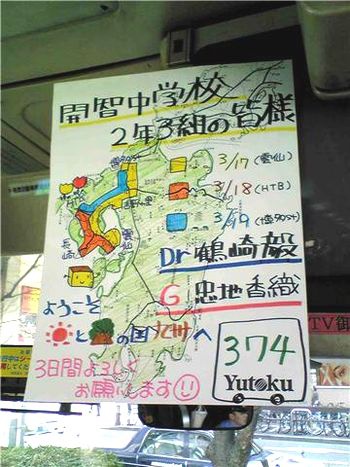 開智中学校
2年3組の皆様
3/17 (雲仙)
3/18 (HTB)
3/19
長崎
雲仙
Dr 鶴崎毅
G 忠地香織
ようこそ
と の国九州へ
374
Yutoku
3日間よろしく
お願いします
TV御